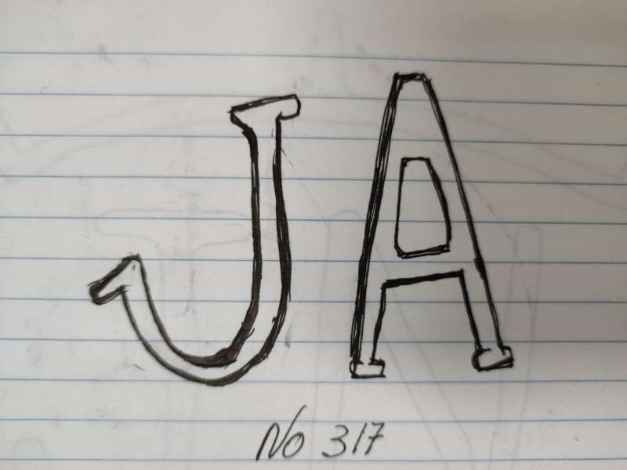 JA
No 317